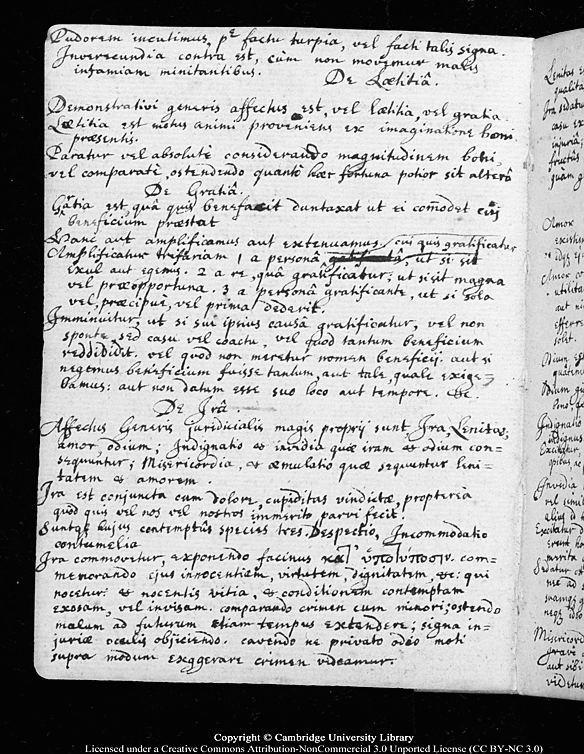 Pudorem incutimus, pᵉ factu turpia, vel facti talis signa.
Inverecundia contra est, cum non movemur malis
infamiam minitantibus.
De Lætitiâ.
Demonstrativi generis affectus est, vel lætitia, vel gratia.
Lætitia est motus animi proveniens ex imaginatione boni
præsentis.
Paratur vel absolutè considerando magnitudinem boni,
vel comparatè, ostendendo quantò hæc fortuna potior sit alterâ
De Gratiâ.
Gratia est, quâ quis benefacit duntaxat ut ei com̄odet cui
beneficium præstat
Hanc aut amplificamus aut extenuamus. / cui quis gratificatur
Amplificatur trifariam 1 a personâ, ut si sit
exul aut egenus. 2 a re, quâ gratificatur: ut si sit magna
vel præopportuna. 3 a personâ gratificante, ut si sola
vel præcipuè, vel prima dederit.
Imminuitur, ut si sui ipsius causâ gratificatur, vel non
sponte, sed casu vel coactu, vel quod tantum beneficium
reddidit. vel quod non meretur nomen beneficij. aut si
negemus beneficium fuisse tantum, aut tale, quale exige-
bamus: aut non datum esse suo loco aut tempore. &c.
De Irâ
Affectus Generis juridicialis magis proprij sunt Ira, Lenitas,
amor, odium; Indignatio et invidia quæ iram et odium con-
sequuntur; Misericordia, et æmulatio quæ sequuntur leni-
tatem et amorem.
Ira est conjuncta cum dolore cupiditas vindictæ, propterea
quòd quis vel nos vel nostros immeritò parvi fecit.
Suntq hujus contemptûs species tres, Despectio, Incommodatio
contumelia
Ira commovetur, exponendo facinus καθ' ὑποτύποσιν. com-
memorando ejus innocentiam, virtutem, dignitatem, &c: qui
nocetur: et nocentis vitia, et conditionem contemptam
exosam, vel invisam. comparando crimen cum minori; ostendo
malum ad futurum etiam tempus extendere; signa in-
juriæ oculis objiciendo. cavendo ne privato odio moti
supra modum exaggerare crimen videamur.
Copyright © Cambridge University Library
Licensed under a Creative Commons Attribution-NonCommercial 3.0 Unported License (CC BY-NC 3.0)